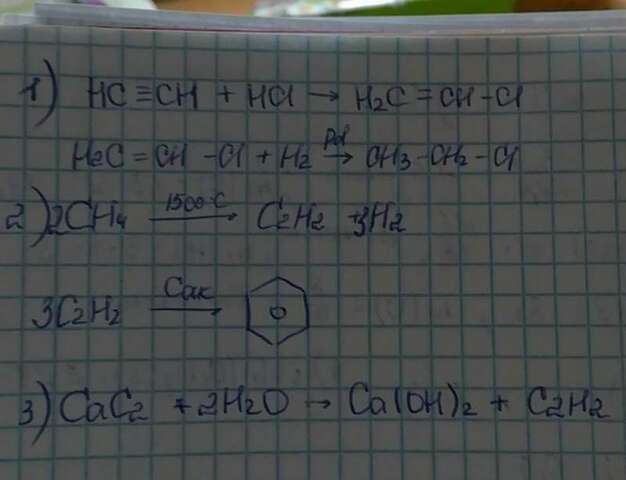 1) HC ≡ CH + HCl → H2C = CH - Cl
H2C = CH - Cl + H2 Pd→ CH3 - CH2 - Cl
2) 2CH4 1500°C→ C2H2 + 3H2
3C2H2 Cак→
3) CaC2 + 2H2O → Ca(OH)2 + C2H2